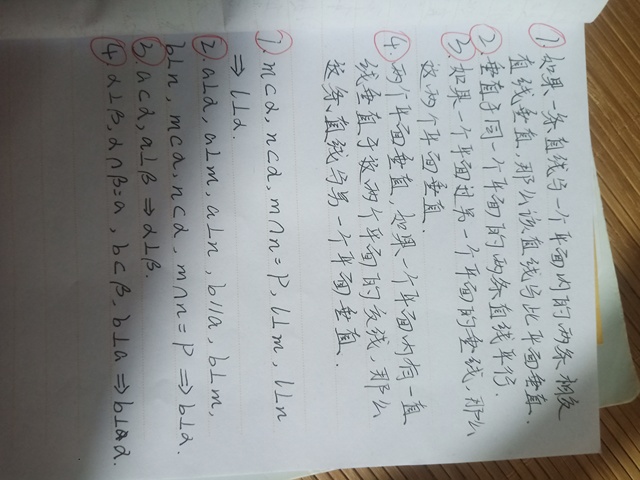 ①.如果一条直线与一个平面内的两条相交
直线垂直，那么该直线与比平面垂直.
②.垂直于同一个平面的两条直线平行.
③.如果一个平面过另一个平面的垂线，那么
这两个平面垂直.
④.两个平面垂直，如果一个平面内有一直
线垂直于这两个平面的交线，那么
这条直线与另一个平面垂直.
①.m⊂α，n⊂α，m∩n=P，l⊥m，l⊥n
⇒l⊥α.
②.a⊥α，a⊥m，a⊥n，b∥a，b⊥m，
b⊥n，m⊂α，n⊂α，m∩n=P⇒b⊥α.
③a⊂α，a⊥β⇒α⊥β.
④.α⊥β，α∩β=a，b⊂β，b⊥a⇒b⊥α.